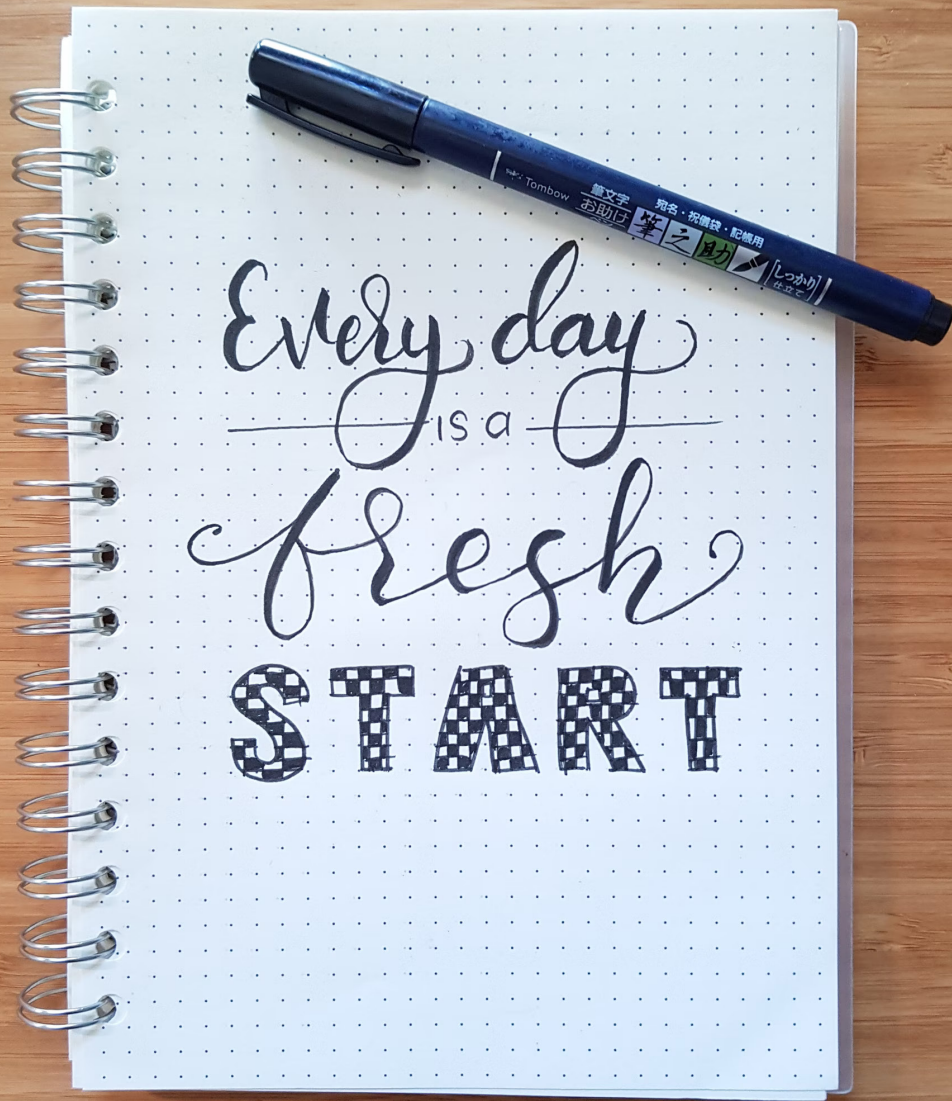 Tombow
筆文字
お助け
宛名・祝儀袋・記帳用
筆之助
しっかり
仕立て
Every day
is a
fresh
START